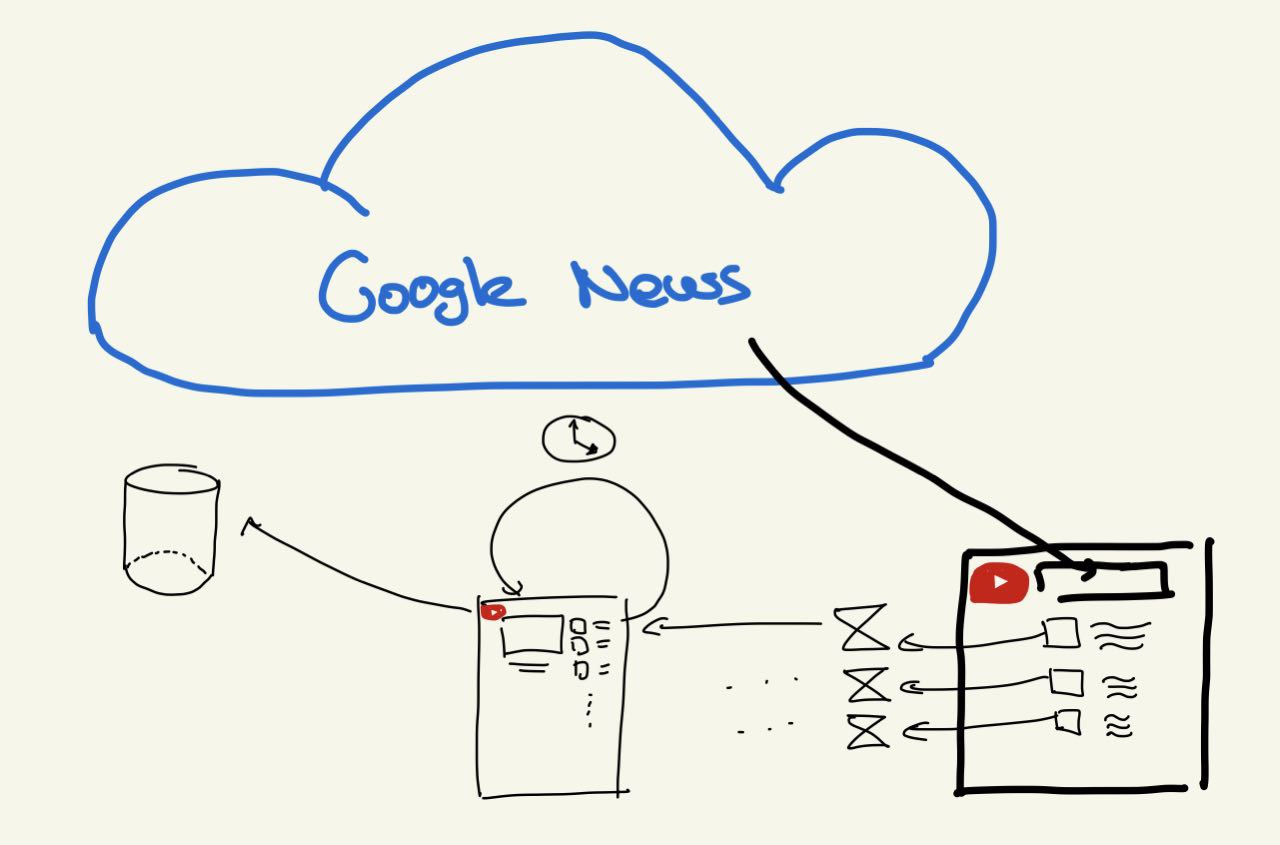 Google News